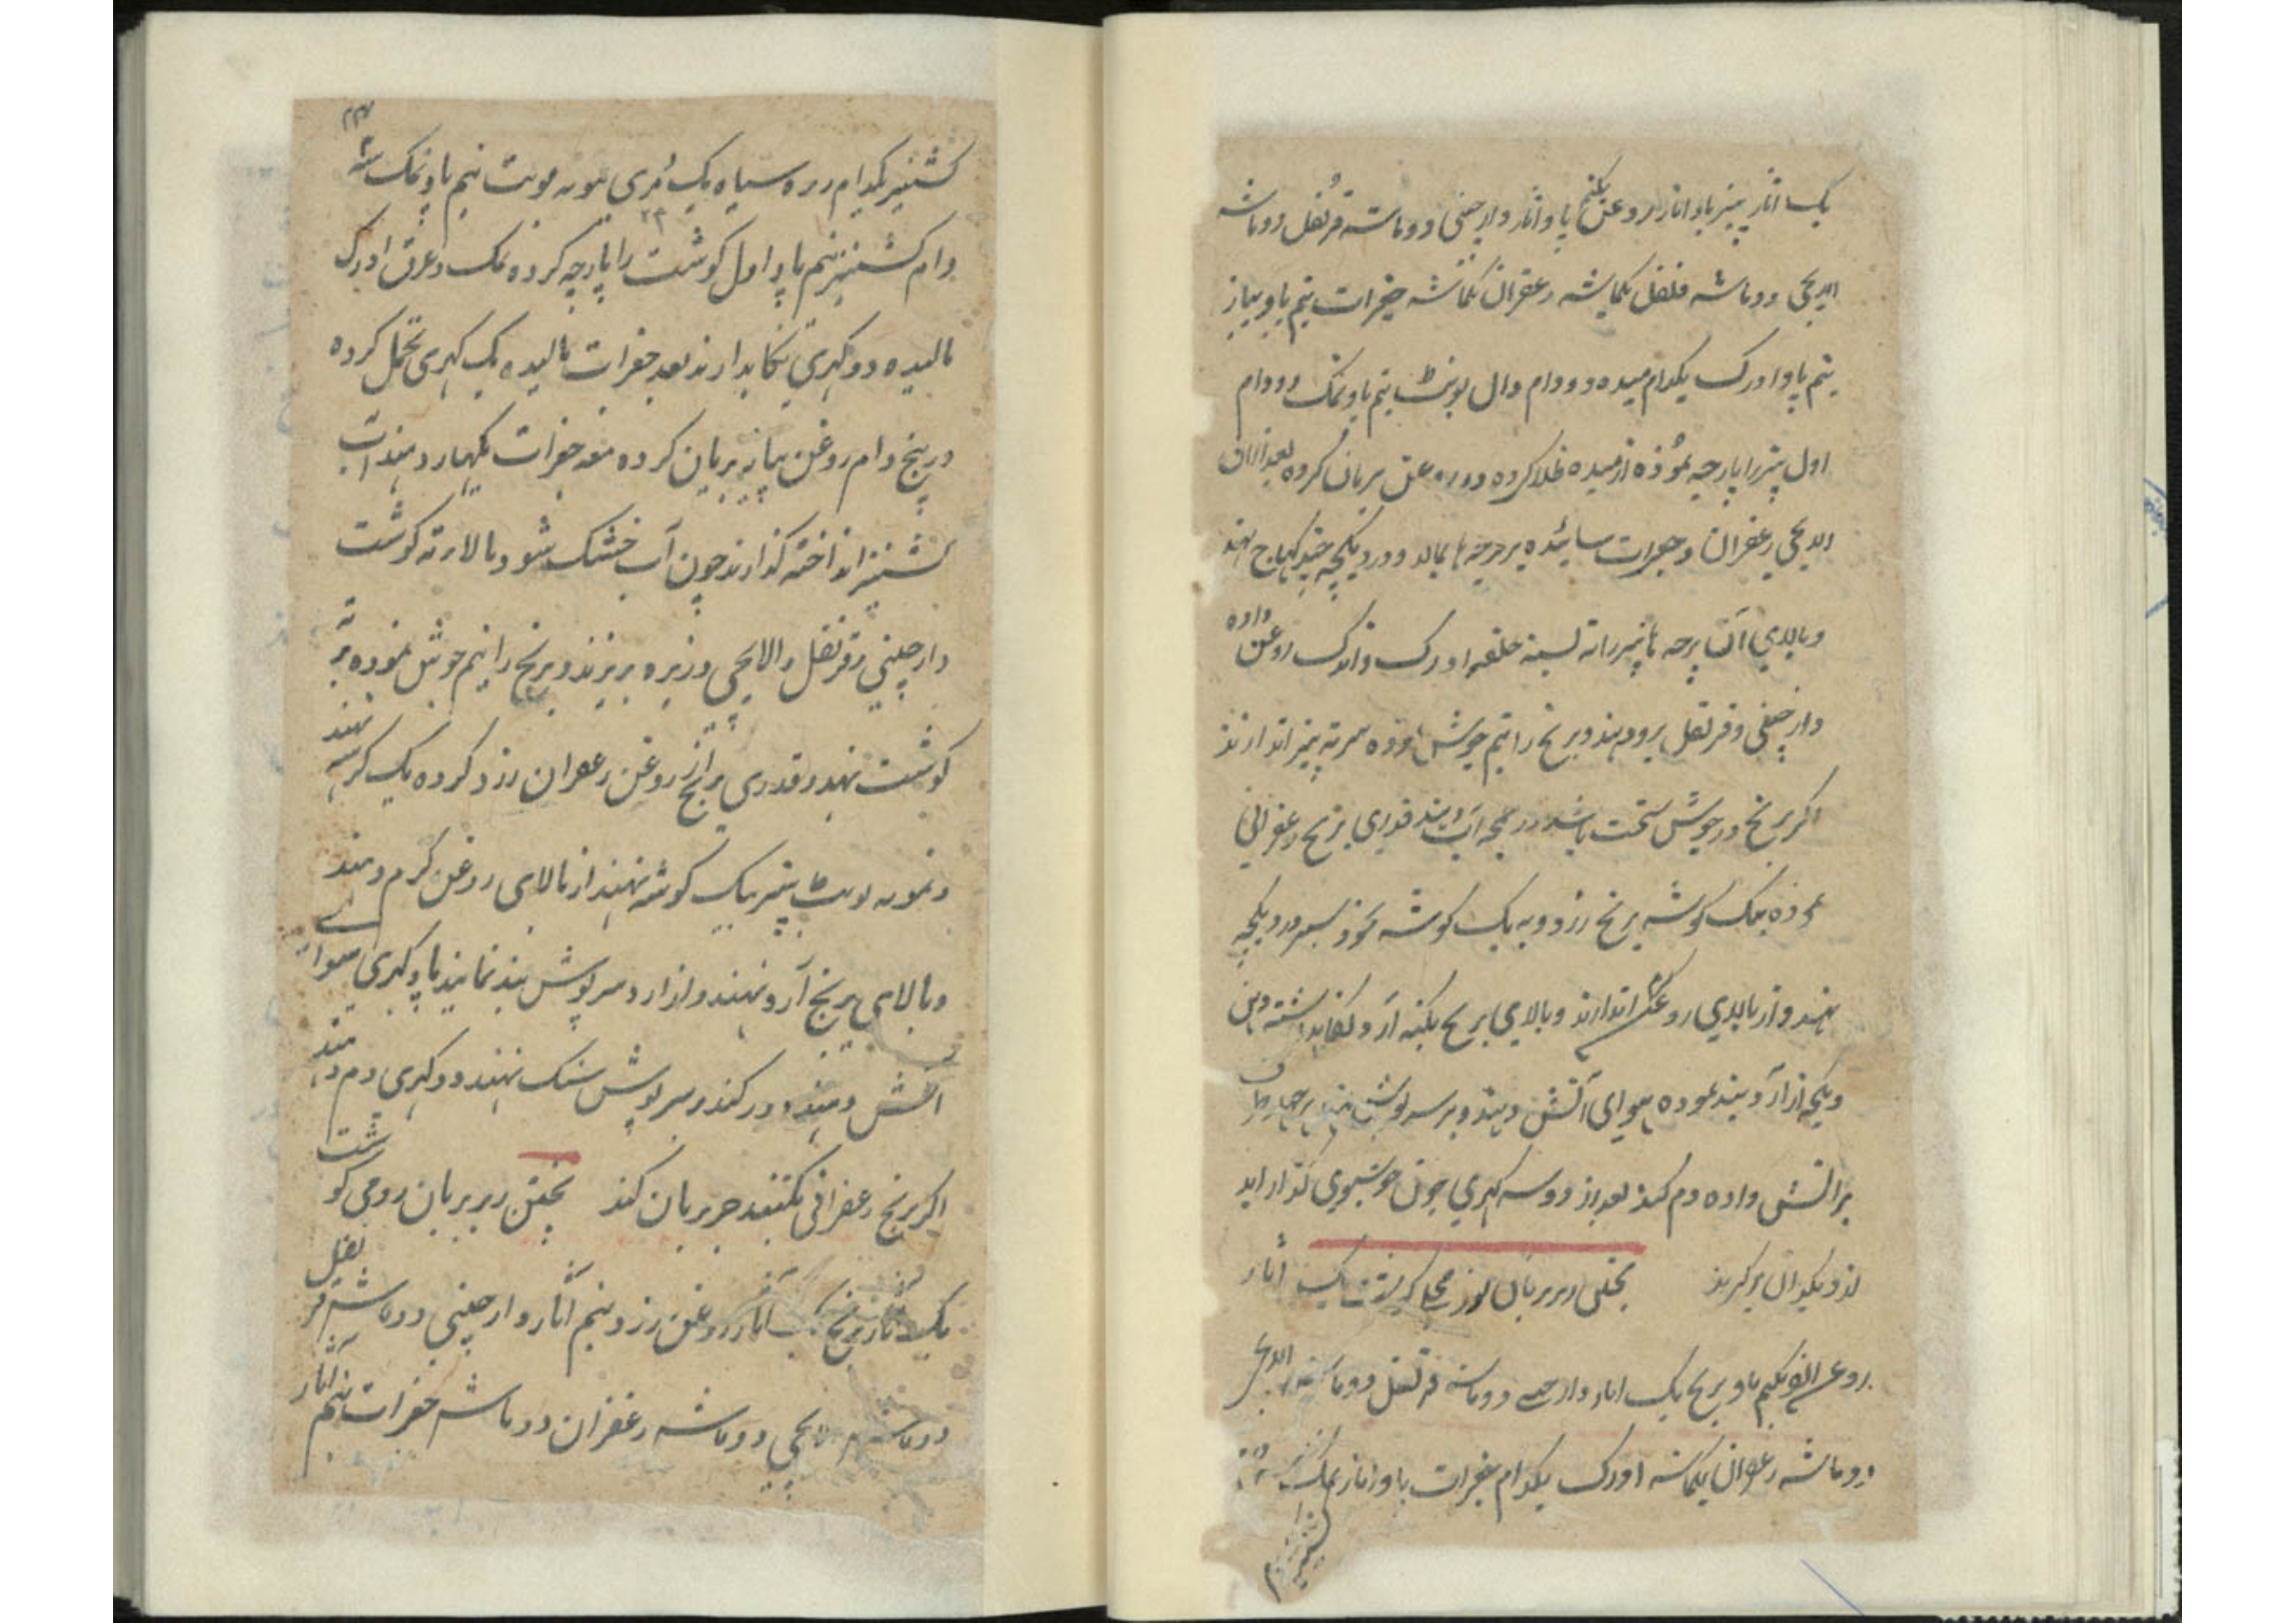 یک اثار پنیر پاو اثار روغن یکنیم پاو اثار دارچینی دو ماشه قرنفل دو ماشه
الایچی دو ماشه فلفل یکماشه زعفران یکماشه جغرات نیم پاو پیاز
نیم پاو ادرک یکدام میده دو دام دال بونٹ نیم پاو نمک دو دام
اول پنیر را پارچه نموده از میده طلا کرده در روغن بریان کرده بعد ازان
الایچی زعفران و جغرات سائیده بر پرچه ها بمالد و در دیکچه
و بالای آن پرچه ها پنیر را ته بسته حلقه ادرک و اندک روغن داده
دارچینی و قرنفل برو دهند و برنج را نیم جوش داده سر ته پنیر اندازند
اکر برنج در جوش سخت باشد در دیکچه آب دهند قدری برنج زعفرانی
نموده بیک کوشه برنج زرد و به یک کوشه
نهند و از بالای روغن اندازند و بالای برنج
دیکچه از آرد بند نموده سوای آتش دهند و بر سرپوش نهند بر چهار طرف
بر اتش داده دم کنند بعد از دو سه کهری چون خوشبوی
از دیکدان برکیرند پختن زیربریان یک اثار
روغن یکنیم پاو برنج یک اثار دارچینی دو ماشه قرنفل دو ماشه الایچی
دو ماشه زعفران یکماشه ادرک یکدام جغرات پاو اثار نمک
کشنیز یکدام زیره سیاه یک بونٹ نیم پاو نمک سه
دام کشنیز نیم پاو اول کوشت را پارچه کرده نمک و عرق ادرک
مالیده دو کهری نکاهدارند بعد جغرات مالیده یک کهری تحمل کرده
در پنج دام روغن پیاز بریان کرده معه جغرات بکهار دهند آب
کشنیز انداخته کذارند چون آب خشک شود بالای ته کوشت
دارچینی و قرنفل و الایچی و زیره بریزند و برنج را نیم جوش نموده بر ته
کوشت نهند و قدری برنج از روغن زعفران زرد کرده یک کوشه نهند
و نمونه بونٹ پنیر بیک کوشه نهند از بالای روغن کرم دهند
و بالای برنج آرد نهند و از آرد سرپوش بند نمایند پاو کهری سوای
آتش دهند و دور کنند و سرپوش سنک نهند دو کهری دم دهند
اکر برنج زعفرانی نکنند جز بریان کنند پختن زیربریان رومی کوشت
یک اثار برنج یک اثار روغن زرد نیم اثار دارچینی دو ماشه قرنفل
دو ماشه الایچی دو ماشه زعفران دو ماشه جغرات نیم اثار